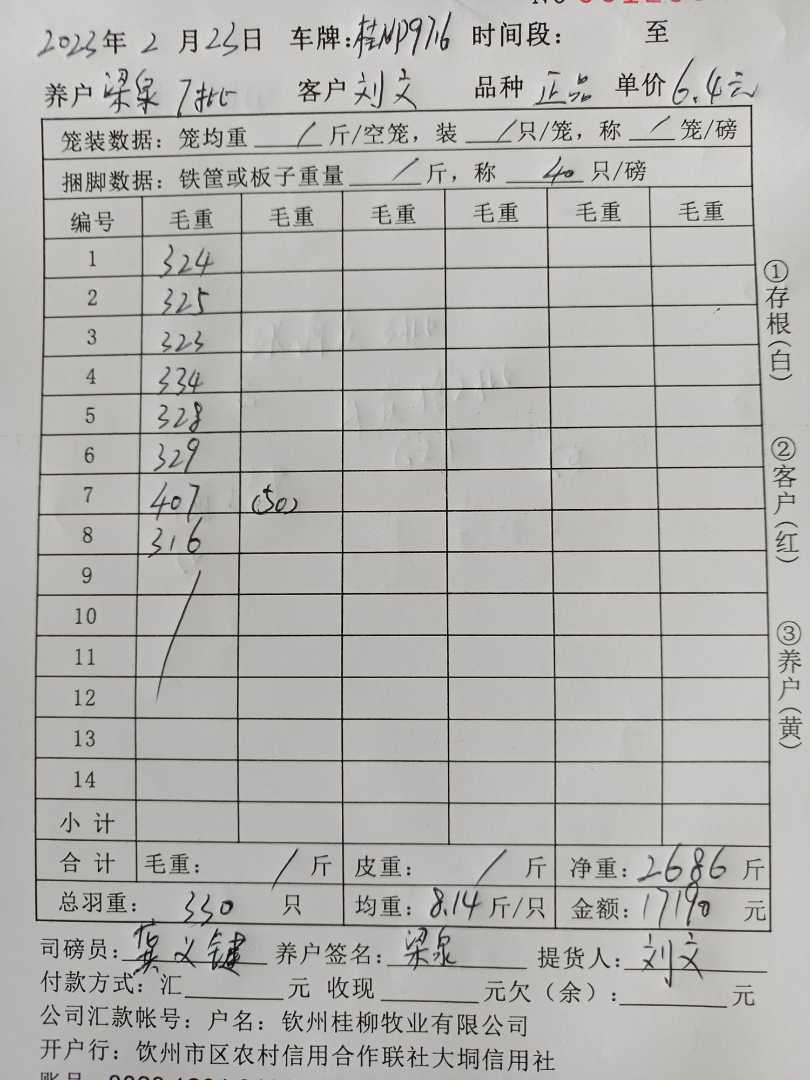 2023年 2 月23日 车牌:桂NP9716 时间段: 至
养户 梁泉 7批 客户 刘文 品种 正品 单价 6.4元
笼装数据：笼均重 / 斤/空笼，装 / 只/笼，称 / 笼/磅
捆脚数据：铁筐或板子重量 / 斤，称 40 只/磅
编号 毛重 毛重 毛重 毛重 毛重 毛重
1 324
2 325
3 323
4 334
5 328
6 329
7 407 (50)
8 316
9
10
11
12
13
14
小计
合计 毛重： / 斤 皮重： / 斤 净重：2686 斤
总羽重： 330 只 均重：8.14 斤/只 金额：17190 元
司磅员：龚义键 养户签名：梁泉 提货人：刘文
付款方式：汇 元 收现 元欠（余）： 元
公司汇款帐号：户名：钦州桂柳牧业有限公司
开户行：饮州市区农村信用合作联社大垌信用社
①存根(白)
②客户(红)
③养户(黄)